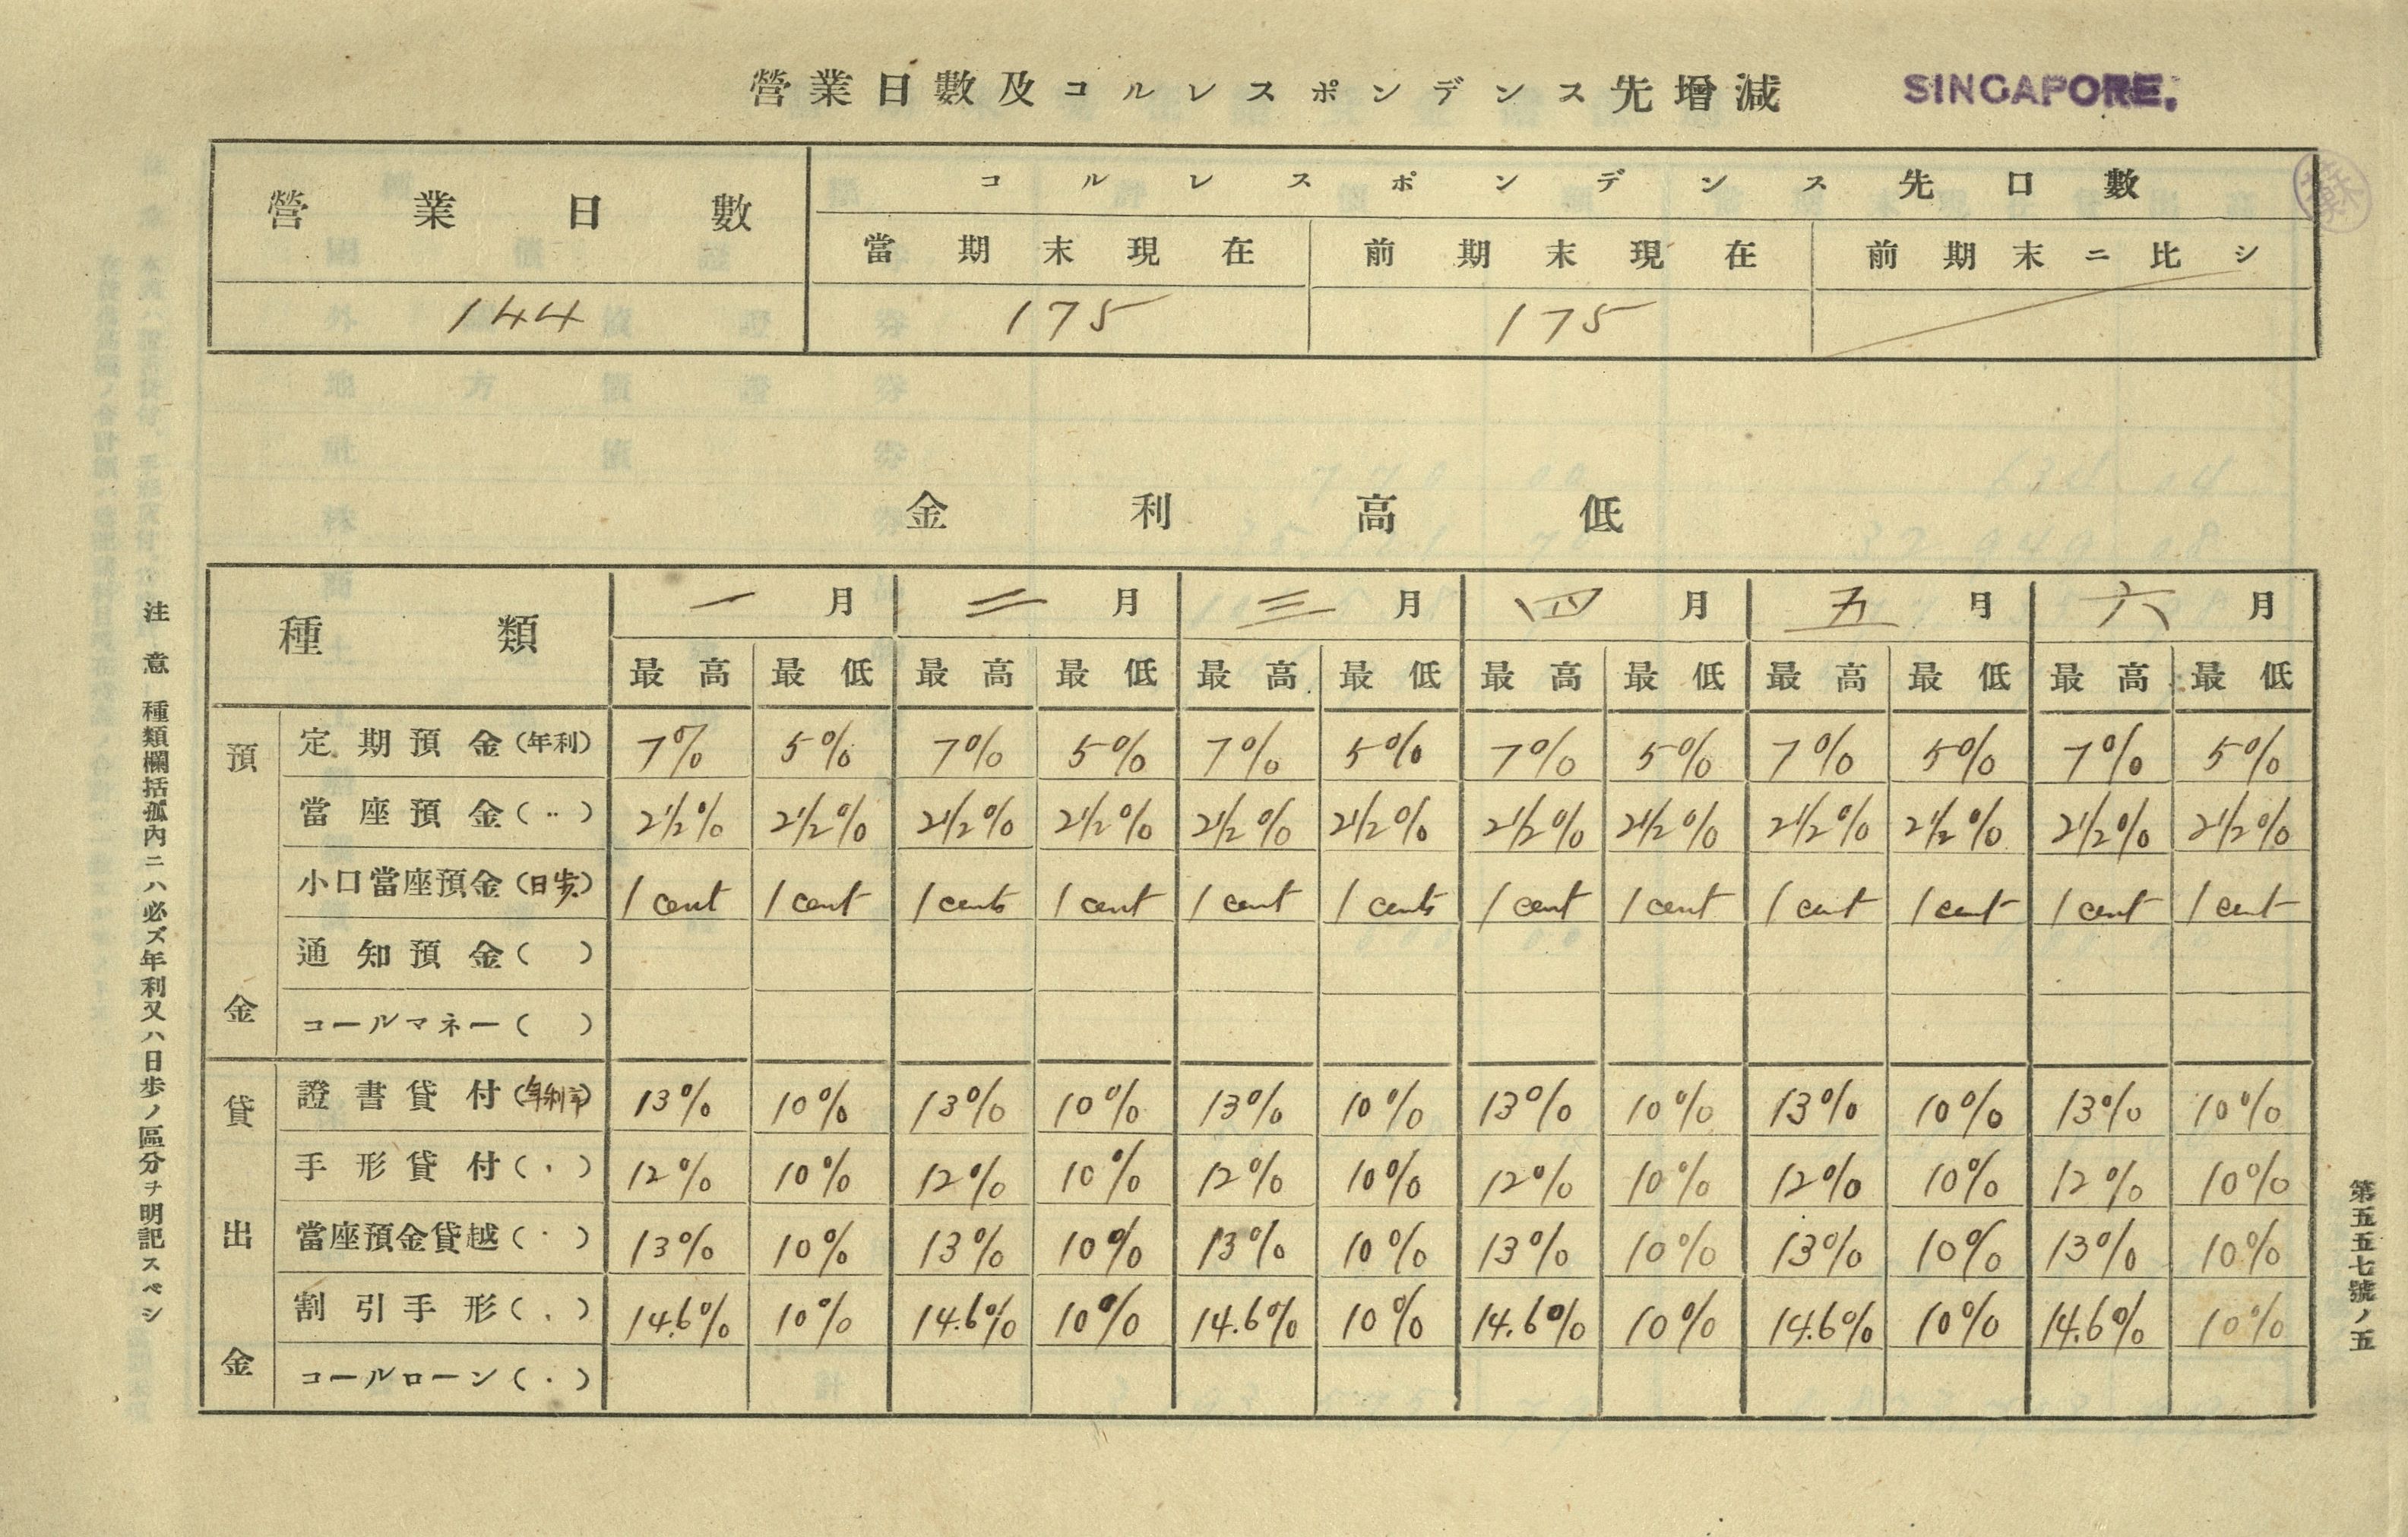 營業日數及コルレスポンデンス先增減 SINGAPORE.
營業日數 コルレスポンデンス先口數
當期末現在 前期末現在 前期末ニ比シ
144 175 175
金利高低
種類 一月 二月 三月 四月 五月 六月
最高 最低 最高 最低 最高 最低 最高 最低 最高 最低 最高 最低
預金
定期預金(年利) 7% 5% 7% 5% 7% 5% 7% 5% 7% 5% 7% 5%
當座預金(〃) 2½% 2½% 2½% 2½% 2½% 2½% 2½% 2½% 2½% 2½% 2½% 2½%
小口當座預金(日歩) 1 cent 1 cent 1 cents 1 cent 1 cent 1 cents 1 cent 1 cent 1 cent 1 cent 1 cent 1 cent
通知預金( )
コールマネー( )
貸出金
證書貸付(年利) 13% 10% 13% 10% 13% 10% 13% 10% 13% 10% 13% 10%
手形貸付(〃) 12% 10% 12% 10% 12% 10% 12% 10% 12% 10% 12% 10%
當座預金貸越(〃) 13% 10% 13% 10% 13% 10% 13% 10% 13% 10% 13% 10%
割引手形(〃) 14.6% 10% 14.6% 10% 14.6% 10% 14.6% 10% 14.6% 10% 14.6% 10%
コールローン(〃)
注意 種類欄括孤內ニハ必ズ年利又ハ日歩ノ區分ヲ明記スベシ
第五五七號ノ五